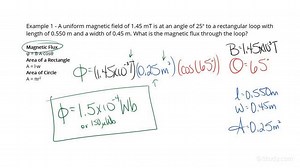 Example 1 - A uniform magnetic field of 1.45 mT is at an angle of 25° to a rectangular loop with
length of 0.550 m and a width of 0.45 m. What is the magnetic flux through the loop?
Magnetic Flux
Φ = B·A·cosθ
Area of a Rectangle
A = l·w
Area of Circle
A = πr²
Φ = (1.45x10⁻³T)(0.25m²)(cos(65°))
Φ = 1.5x10⁻⁴Wb
or 150μWb
B = 1.45x10⁻³T
Θ = 65°
l = 0.550m
w = 0.45m
A = 0.25m²